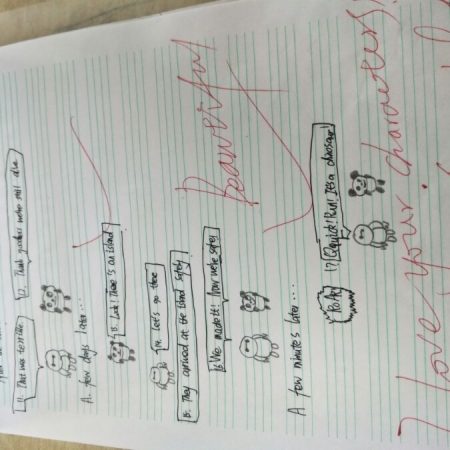 11. That was terrible!
12. Thank goodness we're still alive
A few days later...
13. Look! There is an island
14. Let's go there
15. They arrived at the island safely
16. We made it! Now we're safe!
A few minutes later...
ROAR
17. Quick! Run! It's a dinosaur!
Beautiful
I love your characters!